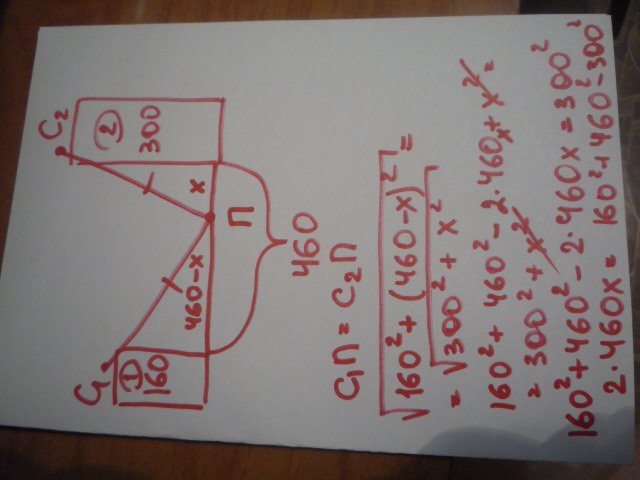 C₂
② 300
x
П
460-x
460
C₁
① 160
C₁П = C₂П
√160² + (460-x)² =
= √300² + x²
160² + 460² - 2·460x + x² =
= 300² + x²
160² + 460² - 2·460x = 300²
2·460x = 160² + 460² - 300²